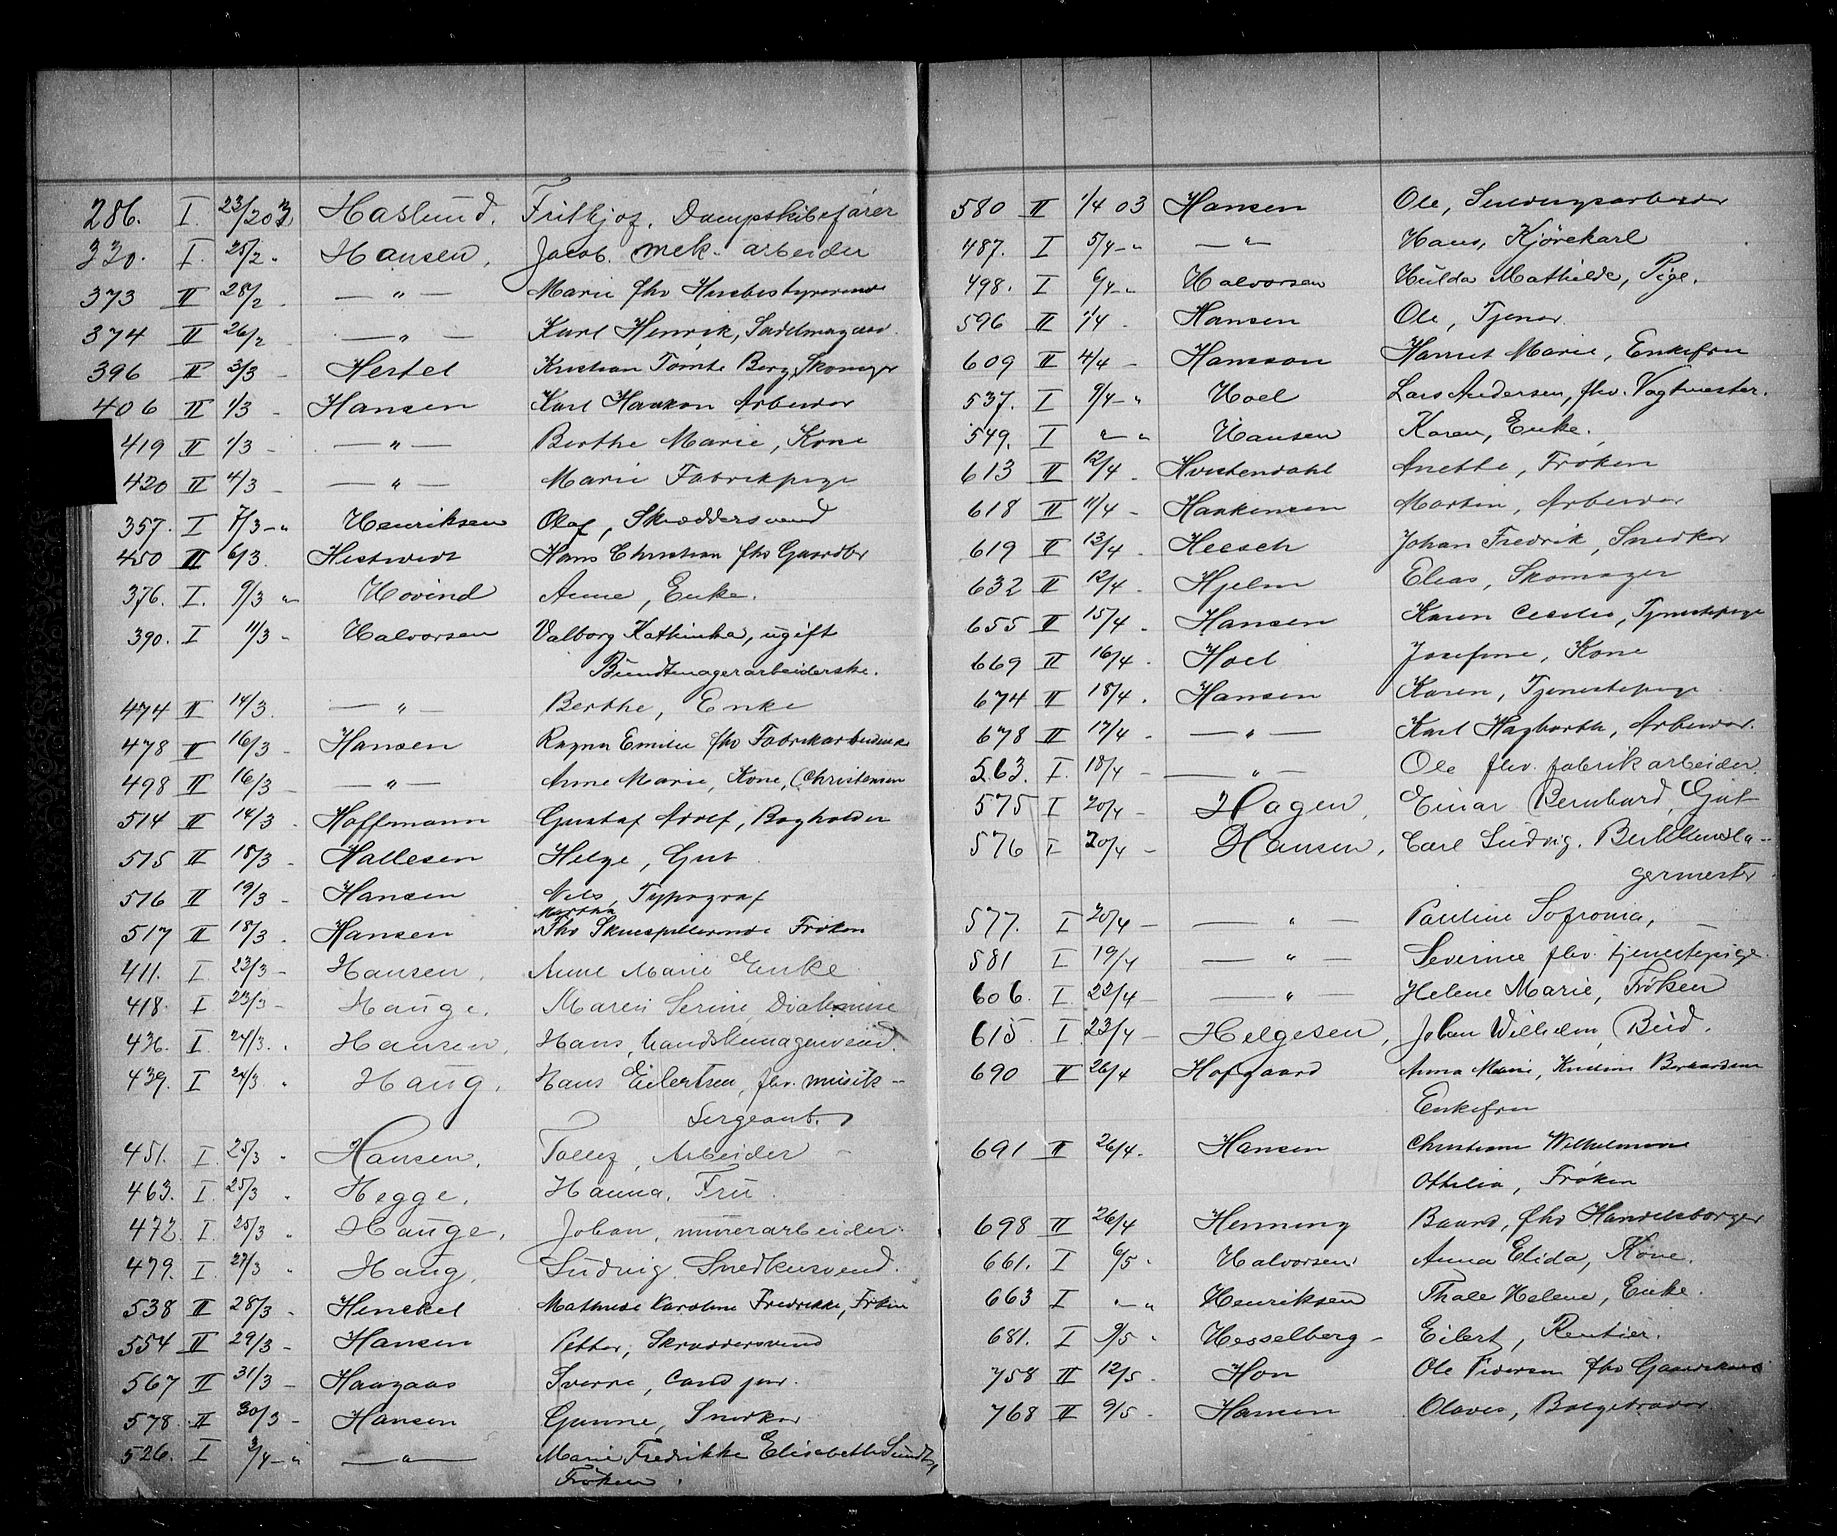 286. I. 23/2 03 Haslund, Frithjof, Dampskibsfører
330. I. 25/2 " Hansen, Jacob, mek. arbeider
373 II 28/2 - — " — Marie fhv Husbestyrerinde
374 II 26/2 - — " — Karl Henrik, Sadelmagersv.
396 II 3/3 - Hertel Kristian Tømte Berg, Skomager
406 II 1/3 - Hansen Karl Haakon Arbeider
419 II 1/3 - — " — Berthe Marie, Kone
420 II 4/3 - — " — Marie Fabrikpige
357. I 7/3 - " Henriksen Olaf, Skræddersvend
450 II 6/3. Hestvedt Hans Christian fhv Gaardbr
376. I. 9/3 " Hovind Anne, Enke.
390. I 11/3 " Halvorsen Valborg Kathinka, ugift
Bundtmagerarbeiderske.
474 II 14/3. — " — Berthe, Enke
478 II 16/3 - Hansen Ragna Emilie fhv Fabrikarbeiderske
498 II 16/3 - — " — Anne Marie, Kone, (Christensen
514 II 14/3 - Hoffmann Gustaf Adolf, Bogholder
515 II 18/3 - Hallesen Helge, Gut
516 II 19/3 - Hansen Nils, Typograf
Martha
517 II 18/3. Hansen Fhv Skuespillerinde Frøken
411. I. 23/3 - Hansen, Anne Marie Enke
418. I 23/3 - Hauge, Maren Serine, Diakonisse
436. I. 24/3. " Hansen, Hans, handskemagersvend.
439. I 24/3 " Haug, Hans Eilertsen, fhv. musik-
Sergeant.
451. I. 25/3 " Hansen, Tollef, Arbeider
463. I. 25/3 " Hegge, Hanna, Fru
472. I. 25/3 " Hauge, Johan, murerarbeider.
479. I. 27/3 " Haug, Ludvig, Snedkersvend.
538 II 28/3 - Henckel Mathilde Karoline Fredrikke, Frøken
554 II 29/3 - Hansen Petter, Skræddersvend
567 II 31/3 - Haagaas Sverre, Cand jur.
578. II 30/3 - Hansen Gunne, Snedker
526. I 3/4 - " — " — Marie Fredrikke Elisabeth Sundt,
Frøken.
580 II 1/4 03 Hansen Ole, Sledningsarbeider
487. I 5/4 - " — " — Hans, Kjørekarl
498. I 6/4 - " Halvorsen Hulda Mathilde, Pige.
596 II 1/4 - Hansen Ole, Tjener
609 II 4/4 - Hansson Harriet Marie, Enkefru
537. I 9/4 - " Hoel Lars Andersen, fhv. Vagtmester.
549. I " - " Hansen Karen, Enke.
613 II 12/4 - Hvistendahl Anette, Frøken
618 II 11/4 - Haakensen Martin, Arbeider
619 II 13/4 - Heesch Johan Fredrik, Snedker
632 II 12/4. Hjelm Elias, Skomager
655 II 15/4 - Hansen Karen Cecilie, Tjenestepige
669 II 16/4. Hoel Josefine, Kone
674 II 18/4. Hansen Karen, Tjenestepige
678 II 17/4 - — " — Karl Hagbarth, Arbeider.
563. I. 18/4 - — " — Ole fhv. fabrikarbeider.
575 I 20/4 - Hagen, Einar Bernhard, Gut
576 I 20/4 - Hansen, Carl Ludvig. Beklædnsla-
germester.
577. I 20/4 - — " — Pauline Sofronia,
581 I 19/4 — " — Severine fhv. tjenestepige.
606. I. 22/4 - — " — Helene Marie, Frøken
615 I. 23/4 - Helgesen, Johan Wilhelm, Bud.
690 II 26/4 Hofgaard Anna Marie, Kristine Bernardine
Enkefru
691 II 26/4. Hansen Christiane Wilhelmine
Othilia, Frøken
698 II 26/4 Henning Baard, fhv Handelsborger
661. I 6/5 " Halvorsen Anna Elida, Kone.
663 I " - " Henriksen Thale Helene, Enke.
681. I 9/5 " Hesselberg - Eilert, Rentier.
758 II 12/5. Hon Ole Pedersen fhv
768 II 9/5 - Hansen Olaves, Bælgetræder.